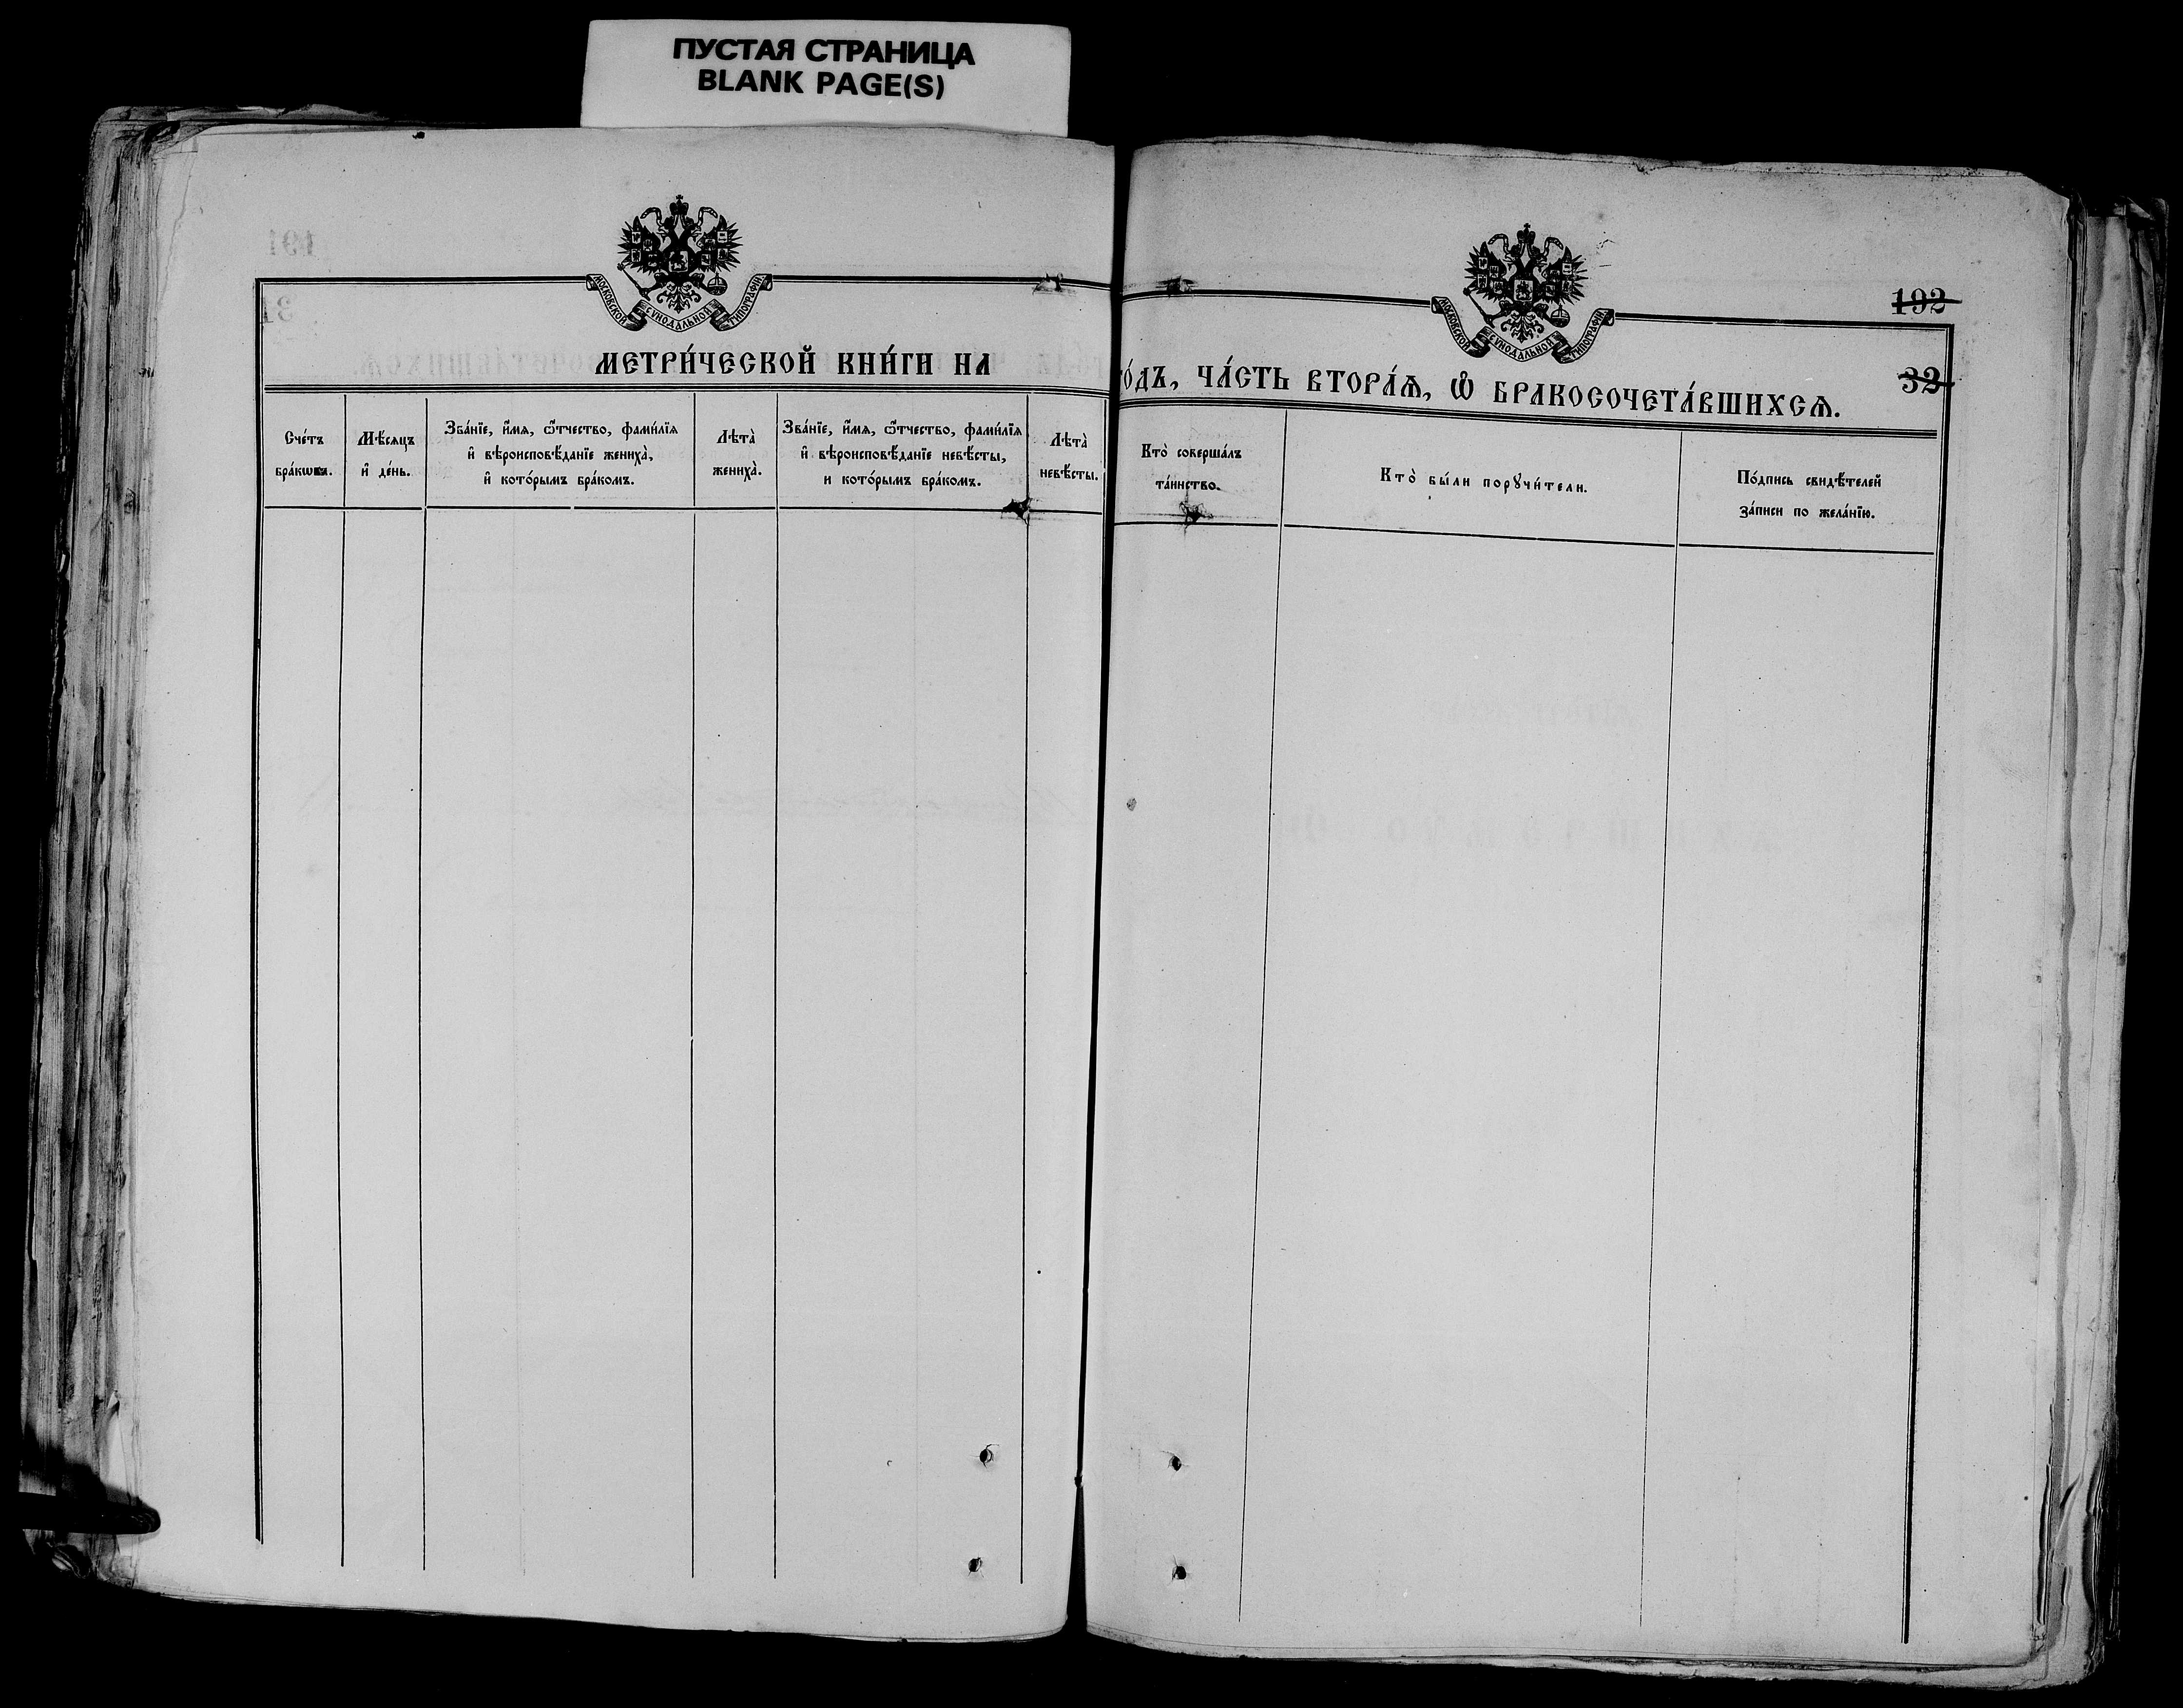 ПУСТАЯ СТРАНИЦА
BLANK PAGE(S)
МОСКОВСКОЙ СѴНОДАЛЬНОЙ ТИПОГРАФІИ.
МЕТРИ́ЧЕСКОЙ КНИ́ГИ НА
Сче́тъ
бра́кѡвъ.
Мѣ́сяцъ
и҆ де́нь.
Зва́нїе, и҆́мя, ѻ҆́тчество, фами́лїя
и҆ вѣроисповѣ́данїе жениха̀,
и҆ кото́рымъ бра́комъ.
Лѣта̀
жениха̀.
Зва́нїе, и҆́мя, ѻ҆́тчество, фами́лїя
и҆ вѣроисповѣ́данїе невѣ́сты,
и кото́рымъ бра́комъ.
Лѣта̀
невѣ́сты.
МОСКОВСКОЙ СѴНОДАЛЬНОЙ ТИПОГРАФІИ.
192
ГО́ДЪ, ЧА́СТЬ ВТОРА́Ѧ, Ѡ҆ БРАКОСОЧЕТА́ВШИХСѦ.
32
Кто̀ соверша́лъ
та́инство.
Кто̀ бы́ли порꙋчи́тели.
По́дпись свидѣ́телей
за́писи по жела́нїю.